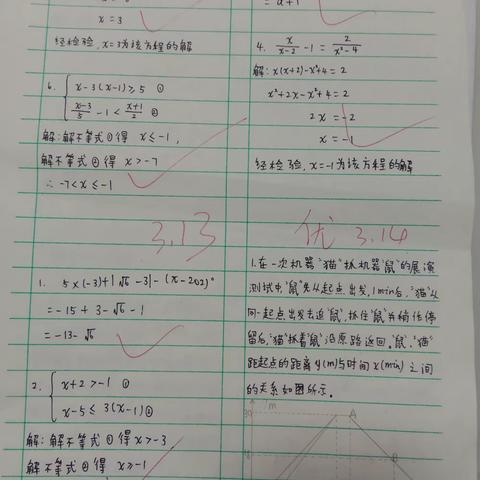 x = 3
经检验，x=3为该方程的解
6. { x-3(x-1)≥5 ①
x-3/5 - 1 < x+1/2 ②
解：解不等式①得 x≤-1，
解不等式②得 x>-7
∴ -7<x≤-1
3.13
1. 5×(-3)+|√6-3|-(π-202)°
=-15+3-√6-1
=-13-√6
2. { x+2>-1 ①
x-5≤3(x-1)②
解：解不等式①得x>-3
解不等式②得 x≥-1
= a+1
4. x/x-2 - 1 = 2/x²-4
解：x(x+2)-x²+4=2
x²+2x-x²+4=2
2x=-2
x=-1
经检验，x=-1为该方程的解
优 3.14
1.在一次机器“猫”抓机器“鼠”的展演
测试中，“鼠”先从起点出发，1min后，“猫”从
同一起点出发去追“鼠”，抓住“鼠”并稍作停
留后，“猫”抓着“鼠”沿原路返回，“鼠”、“猫”
距起点的距离y(m)与时间x(min)之间
的关系如图所示。
30
A
B